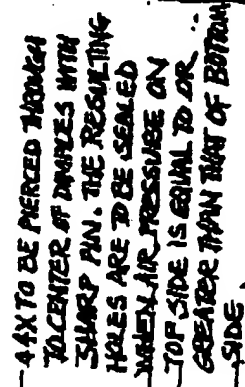 44X TO BE PIERCED THROUGH
TO CENTER OF DIMPLES WITH
SHARP PIN. THE RESULTING
HOLES ARE TO BE SEALED
WHEN AIR PRESSURE ON
TOP SIDE IS EQUAL TO OR
GREATER THAN THAT OF BOTTOM
SIDE.